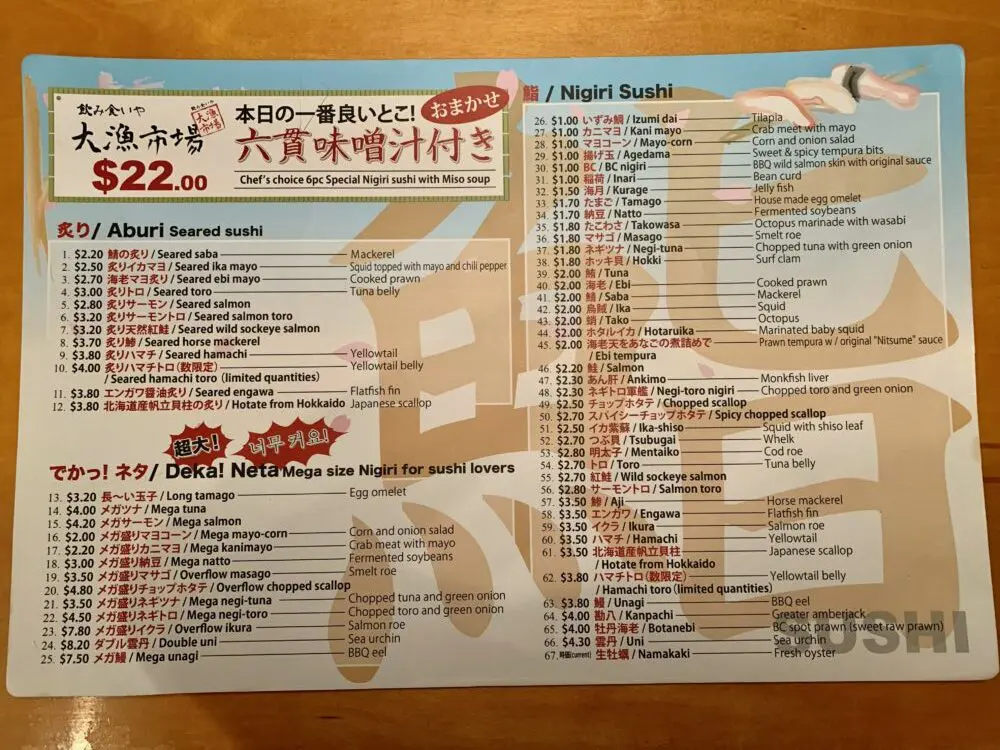 飲み食いや
大漁市場
飲み食いや
大漁市場
$22.00
本日の一番良いとこ!
おまかせ
六貫味噌汁付き
Chef's choice 6pc Special Nigiri sushi with Miso soup
炙り/ Aburi Seared sushi
1. $2.20 鯖の炙り / Seared saba Mackerel
2. $2.50 炙りイカマヨ / Seared ika mayo Squid topped with mayo and chili pepper
3. $2.70 海老マヨ炙り / Seared ebi mayo Cooked prawn
4. $3.00 炙りトロ / Seared toro Tuna belly
5. $2.80 炙りサーモン / Seared salmon
6. $3.20 炙りサーモントロ / Seared salmon toro
7. $3.20 炙り天然紅鮭 / Seared wild sockeye salmon
8. $3.70 炙り鯵 / Seared horse mackerel
9. $3.80 炙りハマチ / Seared hamachi Yellowtail
10. $4.00 炙りハマチトロ(数限定) Yellowtail belly
/ Seared hamachi toro (limited quantities)
11. $3.80 エンガワ醤油炙り / Seared engawa Flatfish fin
12. $3.80 北海道産帆立貝柱の炙り / Hotate from Hokkaido Japanese scallop
超大!
너무 커요!
でかっ! ネタ/ Deka! Neta Mega size Nigiri for sushi lovers
13. $3.20 長〜い玉子 / Long tamago Egg omelet
14. $4.00 メガツナ / Mega tuna
15. $4.20 メガサーモン / Mega salmon
16. $2.00 メガ盛りマヨコーン / Mega mayo-corn Corn and onion salad
17. $2.20 メガ盛りカニマヨ / Mega kanimayo Crab meat with mayo
18. $3.00 メガ盛り納豆 / Mega natto Fermented soybeans
19. $3.50 メガ盛りマサゴ / Overflow masago Smelt roe
20. $4.80 メガ盛りチョップホタテ / Overflow chopped scallop
21. $3.50 メガ盛りネギツナ / Mega negi-tuna Chopped tuna and green onion
22. $4.50 メガ盛りネギトロ / Mega negi-toro Chopped toro and green onion
23. $7.80 メガ盛りイクラ / Overflow ikura Salmon roe
24. $8.20 ダブル雲丹 / Double uni Sea urchin
25. $7.50 メガ鰻 / Mega unagi BBQ eel
鮨 / Nigiri Sushi
26. $1.00 いずみ鯛 / Izumi dai Tilapia
27. $1.00 カニマヨ / Kani mayo Crab meat with mayo
28. $1.00 マヨコーン / Mayo-corn Corn and onion salad
29. $1.00 揚げ玉 / Agedama Sweet & spicy tempura bits
30. $1.00 BC / BC nigiri BBQ wild salmon skin with original sauce
31. $1.00 稲荷 / Inari Bean curd
32. $1.50 海月 / Kurage Jelly fish
33. $1.70 たまご / Tamago House made egg omelet
34. $1.70 納豆 / Natto Fermented soybeans
35. $1.80 たこわさ / Takowasa Octopus marinade with wasabi
36. $1.80 マサゴ / Masago Smelt roe
37. $1.80 ネギツナ / Negi-tuna Chopped tuna with green onion
38. $1.80 ホッキ貝 / Hokki Surf clam
39. $2.00 鮪 / Tuna
40. $2.00 海老 / Ebi Cooked prawn
41. $2.00 鯖 / Saba Mackerel
42. $2.00 烏賊 / Ika Squid
43. $2.00 蛸 / Tako Octopus
44. $2.00 ホタルイカ / Hotaruika Marinated baby squid
45. $2.00 海老天をあなごの煮詰めで Prawn tempura w / original "Nitsume" sauce
/ Ebi tempura
46. $2.20 鮭 / Salmon
47. $2.30 あん肝 / Ankimo Monkfish liver
48. $2.30 ネギトロ軍艦 / Negi-toro nigiri Chopped toro and green onion
49. $2.50 チョップホタテ / Chopped scallop
50. $2.70 スパイシーチョップホタテ / Spicy chopped scallop
51. $2.50 イカ紫蘇 / Ika-shiso Squid with shiso leaf
52. $2.70 つぶ貝 / Tsubugai Whelk
53. $2.80 明太子 / Mentaiko Cod roe
54. $2.70 トロ / Toro Tuna belly
55. $2.70 紅鮭 / Wild sockeye salmon
56. $2.80 サーモントロ / Salmon toro
57. $3.50 鯵 / Aji Horse mackerel
58. $3.50 エンガワ / Engawa Flatfish fin
59. $3.50 イクラ / Ikura Salmon roe
60. $3.50 ハマチ / Hamachi Yellowtail
61. $3.50 北海道産帆立貝柱 Japanese scallop
/ Hotate from Hokkaido
62. $3.80 ハマチトロ(数限定) Yellowtail belly
/ Hamachi toro (limited quantities)
63. $3.80 鰻 / Unagi BBQ eel
64. $4.00 勘八 / Kanpachi Greater amberjack
65. $4.00 牡丹海老 / Botanebi BC spot prawn (sweet raw prawn)
66. $4.30 雲丹 / Uni Sea urchin
67. 時価(current) 生牡蠣 / Namakaki Fresh oyster
SUSHI
鮨